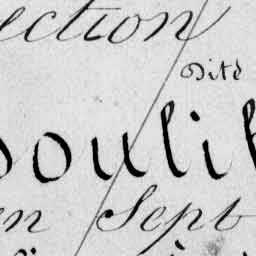 ection
dité
oulil
en Sept